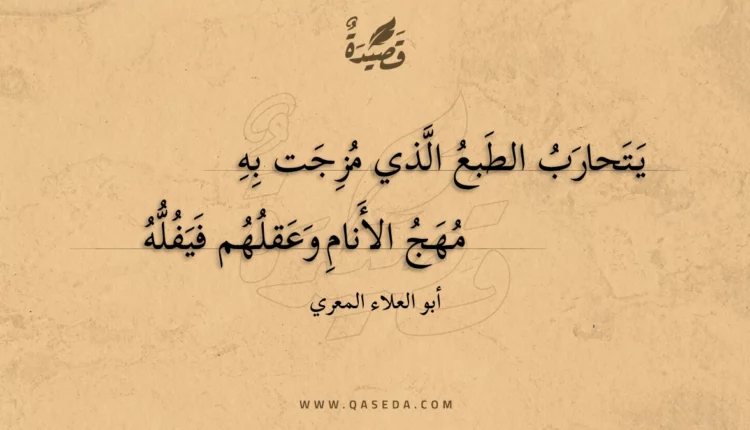 قَصِيدَةٌ
يَتَحارَبُ الطَبعُ الَّذي مُزِجَت بِهِ
مُهَجُ الأَنامِ وَعَقلُهُم فَيَفُلُّهُ
أبو العلاء المعري
WWW.QASEDA.COM